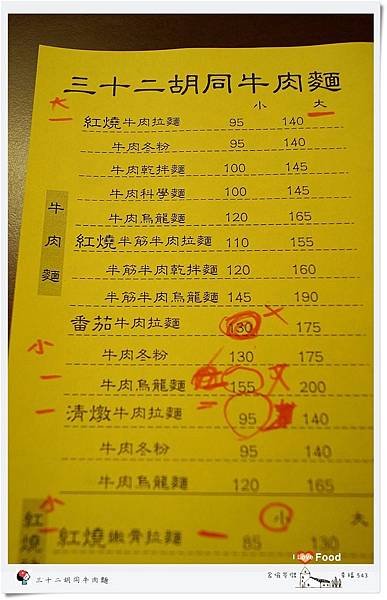 三十二胡同牛肉麵
小 大
大 一 紅燒牛肉拉麵 95 140
牛肉冬粉 95 140
牛肉乾拌麵 100 145
牛肉科學麵 100 145
牛肉烏龍麵 120 165
牛肉麵
紅燒半筋半肉拉麵 110 155
半筋半肉乾拌麵 120 160
半筋半肉烏龍麵 145 190
番茄牛肉拉麵 130 175
小 牛肉冬粉 130 175
一 牛肉烏龍麵 155 200
一 清燉牛肉拉麵 95 140
牛肉冬粉 95 140
牛肉烏龍麵 120 165
小 大
紅燒
紅燒嫩骨拉麵 85 130
I Love Food
三十二胡同牛肉麵
幸福543